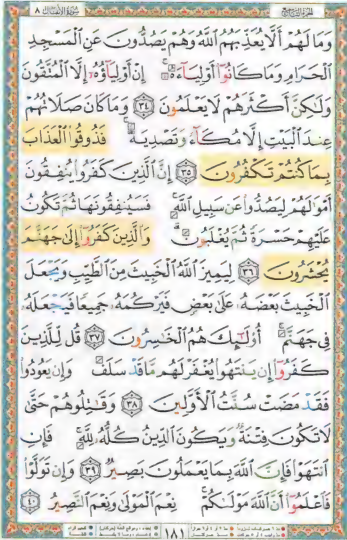 سورة الأنفال ٨
وَمَا لَهُمْ أَلَّا يُعَذِّبَهُمُ ٱللَّهُ وَهُمْ يَصُدُّونَ عَنِ ٱلْمَسْجِدِ
ٱلْحَرَامِ وَمَا كَانُوٓا۟ أَوْلِيَآءَهُۥٓ ۚ إِنْ أَوْلِيَآؤُهُۥٓ إِلَّا ٱلْمُتَّقُونَ
وَلَٰكِنَّ أَكْثَرَهُمْ لَا يَعْلَمُونَ ٣٤ وَمَا كَانَ صَلَاتُهُمْ
عِندَ ٱلْبَيْتِ إِلَّا مُكَآءً وَتَصْدِيَةً ۚ فَذُوقُوا۟ ٱلْعَذَابَ
بِمَا كُنتُمْ تَكْفُرُونَ ٣٥ إِنَّ ٱلَّذِينَ كَفَرُوا۟ يُنفِقُونَ
أَمْوَٰلَهُمْ لِيَصُدُّوا۟ عَن سَبِيلِ ٱللَّهِ ۚ فَسَيُنفِقُونَهَا ثُمَّ تَكُونُ
عَلَيْهِمْ حَسْرَةً ثُمَّ يُغْلَبُونَ ۗ وَٱلَّذِينَ كَفَرُوٓا۟ إِلَىٰ جَهَنَّمَ
يُحْشَرُونَ ٣٦ لِيَمِيزَ ٱللَّهُ ٱلْخَبِيثَ مِنَ ٱلطَّيِّبِ وَيَجْعَلَ
ٱلْخَبِيثَ بَعْضَهُۥ عَلَىٰ بَعْضٍ فَيَرْكُمَهُۥ جَمِيعًا فَيَجْعَلَهُۥ
فِى جَهَنَّمَ ۚ أُو۟لَٰٓئِكَ هُمُ ٱلْخَٰسِرُونَ ٣٧ قُل لِّلَّذِينَ
كَفَرُوٓا۟ إِن يَنتَهُوا۟ يُغْفَرْ لَهُم مَّا قَدْ سَلَفَ وَإِن يَعُودُوا۟
فَقَدْ مَضَتْ سُنَّتُ ٱلْأَوَّلِينَ ٣٨ وَقَٰتِلُوهُمْ حَتَّىٰ
لَا تَكُونَ فِتْنَةٌ وَيَكُونَ ٱلدِّينُ كُلُّهُۥ لِلَّهِ ۚ فَإِنِ
ٱنتَهَوْا۟ فَإِنَّ ٱللَّهَ بِمَا يَعْمَلُونَ بَصِيرٌ ٣٩ وَإِن تَوَلَّوْا۟
فَٱعْلَمُوٓا۟ أَنَّ ٱللَّهَ مَوْلَىٰكُمْ ۚ نِعْمَ ٱلْمَوْلَىٰ وَنِعْمَ ٱلنَّصِيرُ ٤٠
١٨١